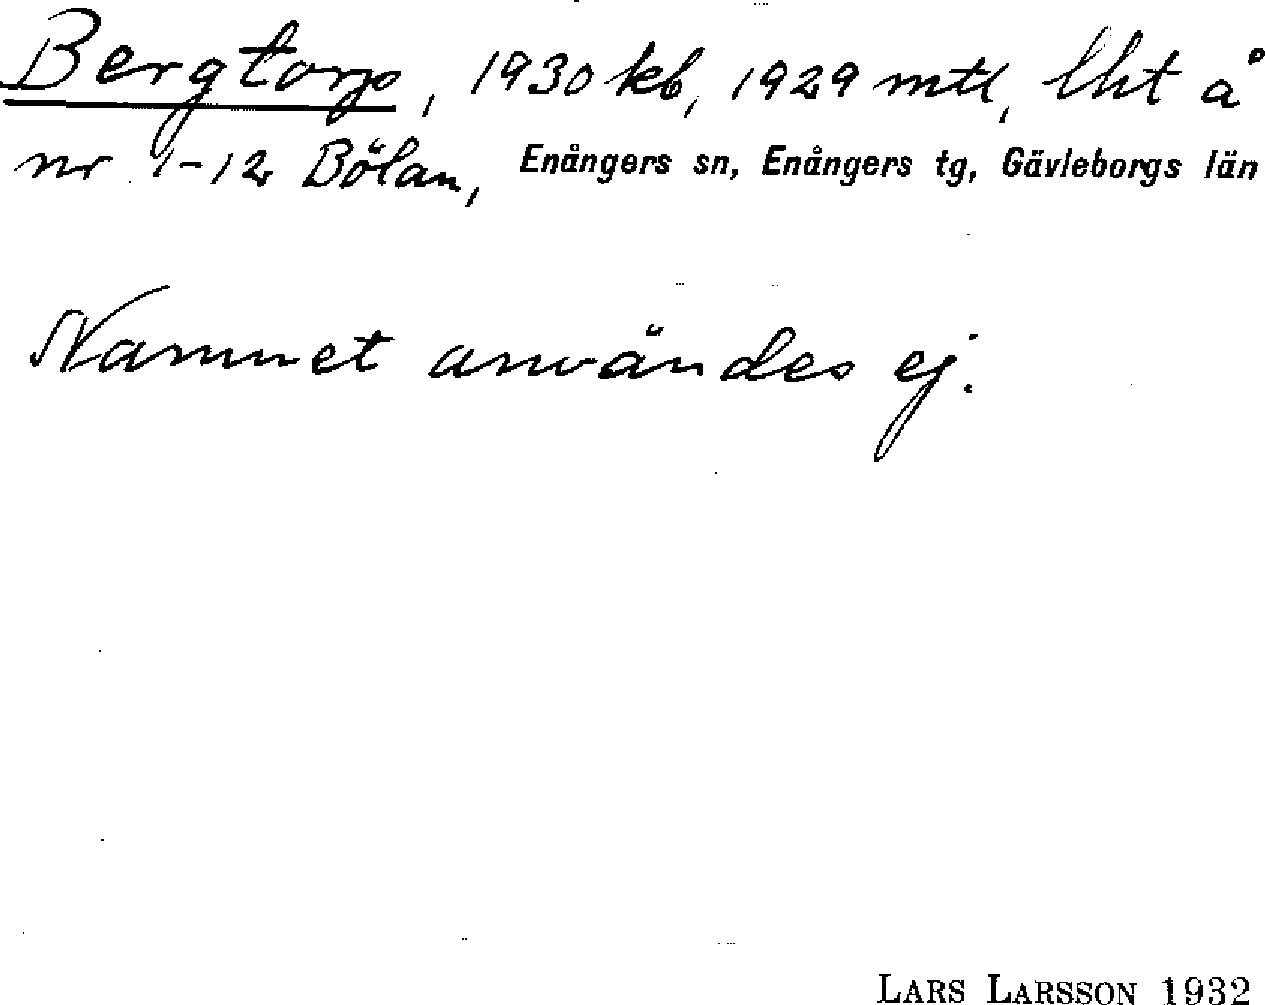 Bergtorp, 1930 kb, 1929 mtl, lht å
nr 1-12 Bölan, Enångers sn, Enångers tg, Gävleborgs län
Namnet användes ej.
LARS LARSSON 1932